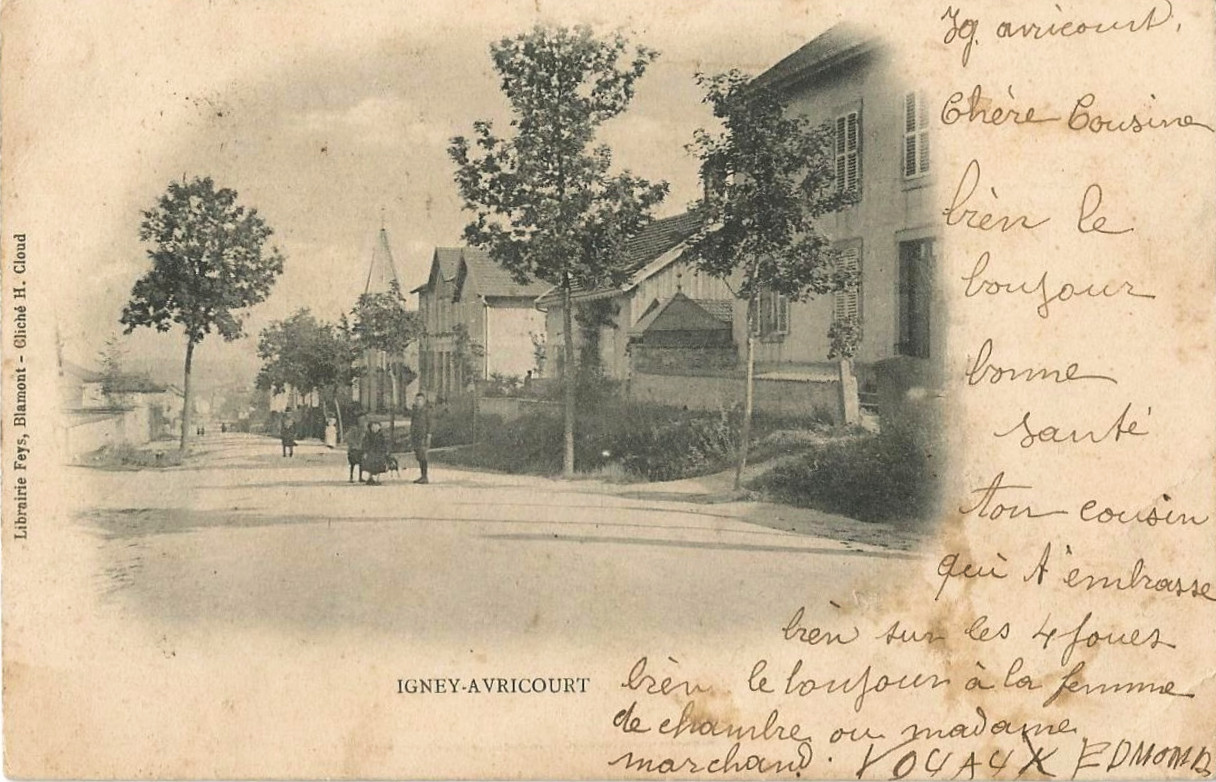 Ig. avricourt.
Chère Cousine
bièn le
bonjour
bonne
santé
ton cousin
qui t'embrasse
bièn sur les 4 joues
bièn le bonjour à la femme
de chambre ou madame
marchand. VOUAUX EDMOND
IGNEY-AVRICOURT
Librairie Feys, Blamont - Cliché H. Cloud